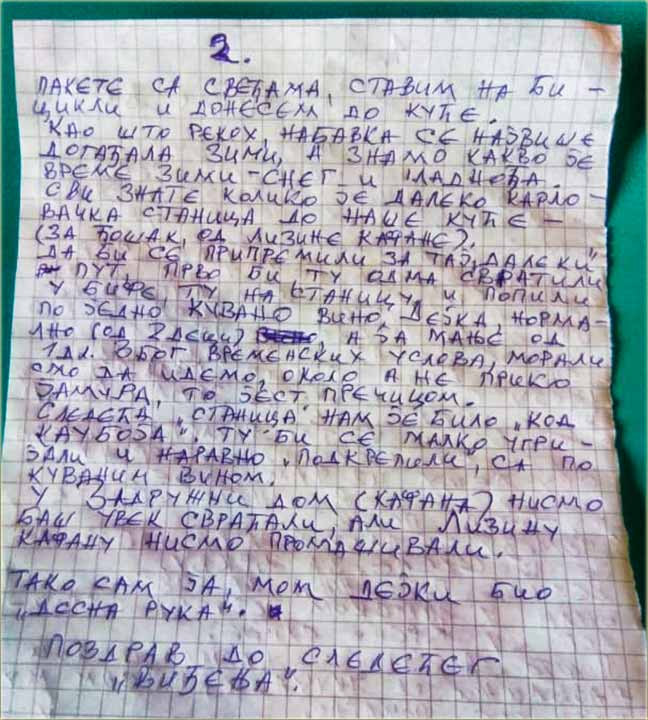 2.
ПАКЕТЕ СА СВЕЋАМА, СТАВИМ НА БИ -
ЦИКЛИ И ДОНЕСЕМ ДО КУЋЕ.
КАО ШТО РЕКОХ, НАБАВКА СЕ НАЈВИШЕ
ДОГАЂАЛА ЗИМИ, А ЗНАМО КАКВО ЈЕ
ВРЕМЕ ЗИМИ - СНЕГ И ЛАДНОЋА.
СВИ ЗНАТЕ КОЛИКО ЈЕ ДАЛЕКО КАРЛО -
ВАЧКА СТАНИЦА ДО НАШЕ КУЋЕ -
(ЗА ЋОШАК, ОД ЛИЗИНЕ КАФАНЕ).
ДА БИ СЕ ПРИПРЕМИЛИ ЗА ТАЈ „ДАЛЕКИ"
ПУТ, ПРВО БИ ТУ ОДМА СВРАТИЛИ
У БИФЕ, ТУ НА СТАНИЦУ, И ПОПИЛИ
ПО ЈЕДНО КУВАНО ВИНО, ДЕЈКА, НОРМА -
ЛНО (ОД 2 ДЕЦИ), А ЈА МАЊЕ ОД
1 ДЛ. ЗБОГ ВРЕМЕНСКИХ УСЛОВА, МОРАЛИ
СМО ДА ИДЕМО, ОКОЛО А НЕ ПРИКО
ЈАМУРА, ТО ЈЕСТ ПРЕЧИЦОМ.
СЛЕДЕЋА „СТАНИЦА" НАМ ЈЕ БИЛО „КОД
КАУБОЈА". ТУ БИ СЕ МАЛКО УГРИ -
ЈАЛИ И НАРАВНО „ПОДКРЕПИЛИ", СА ПО
КУВАНИМ ВИНОМ.
У ЗАДРУЖНИ ДОМ (КАФАНА) НИСМО
БАШ УВЕК СВРАЋАЛИ, АЛИ ЛИЗИНУ
КАФАНУ НИСМО ПРОМАШИВАЛИ.
ТАКО САМ ЈА, МОМ ДЕЈКИ БИО
„ДЕСНА РУКА".
ПОЗДРАВ ДО СЛЕДЕЋЕГ
„ВИЂЕЊА".